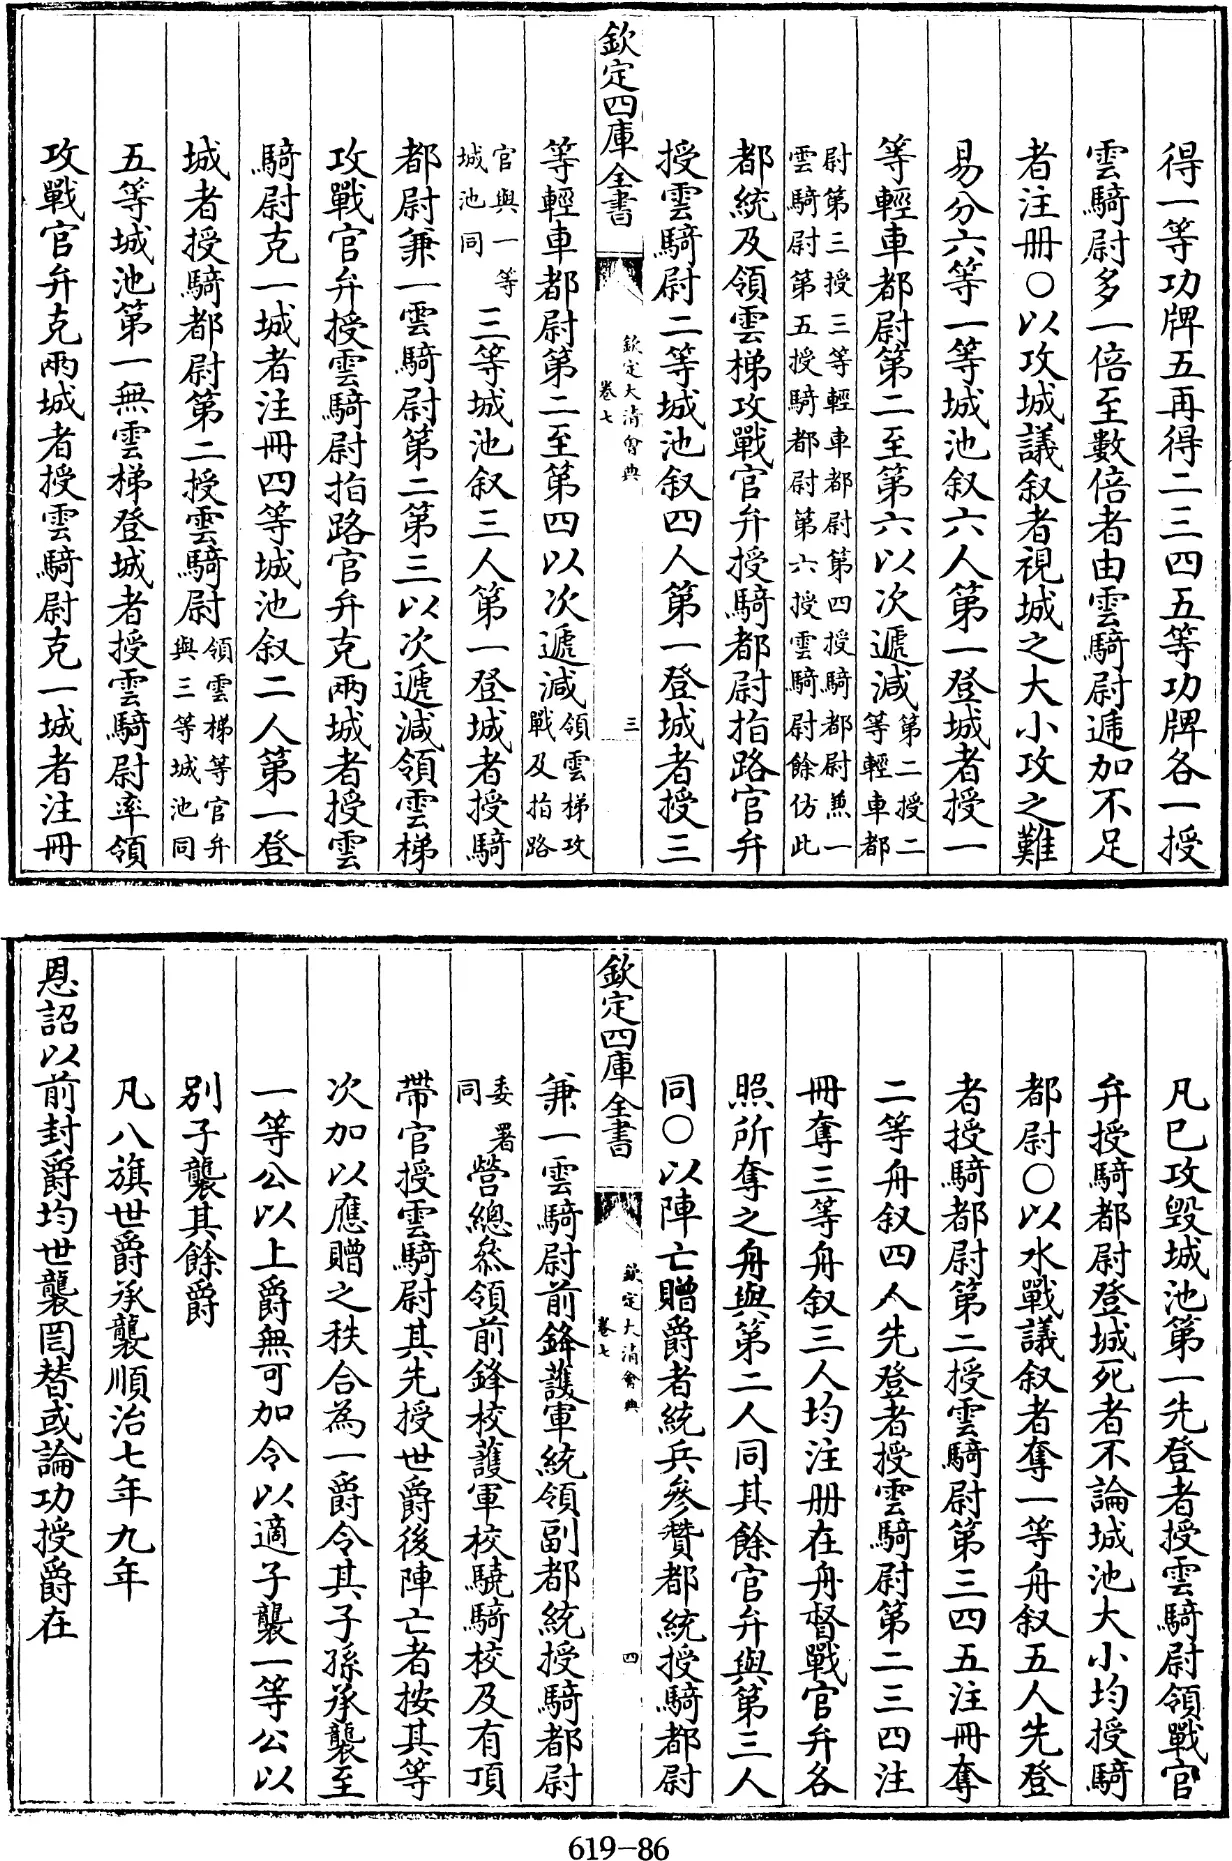 得一等功牌五再得二三四五等功牌各一授
雲騎尉多一倍至數倍者由雲騎尉遞加不足
者注冊○以攻城議叙者視城之大小攻之難
易分六等一等城池叙六人第一登城者授一
等輕車都尉第二至第六以次遞減第二授二等輕車都
尉第三授三等輕車都尉第四授騎都尉兼一雲騎尉第五授騎都尉第六授雲騎尉餘仿此
都統及領雲梯攻戰官弁授騎都尉指路官弁
授雲騎尉二等城池叙四人第一登城者授三
欽定四庫全書
欽定大清會典
卷七
三
等輕車都尉第二至第四以次遞減領雲梯攻戰及指路
官與一等城池同三等城池叙三人第一登城者授騎
都尉兼一雲騎尉第二第三以次遞減領雲梯
攻戰官弁授雲騎尉指路官弁克兩城者授雲
騎尉克一城者注冊四等城池叙二人第一登
城者授騎都尉第二授雲騎尉領雲梯等官弁與三等城池同
五等城池第一無雲梯登城者授雲騎尉率領
攻戰官弁克兩城者授雲騎尉克一城者注冊
凡已攻毀城池第一先登者授雲騎尉領戰官
弁授騎都尉登城死者不論城池大小均授騎
都尉○以水戰議叙者奪一等舟叙五人先登
者授騎都尉第二授雲騎尉第三四五注冊奪
二等舟叙四人先登者授雲騎尉第二三四注
冊奪三等舟叙三人均注冊在舟督戰官弁各
照所奪之舟與第二人同其餘官弁與第三人
同○以陣亡贈爵者統兵參贊都統授騎都尉
欽定四庫全書
欽定大清會典
卷七
四
兼一雲騎尉前鋒護軍統領副都統授騎都尉
委署同營總叅領前鋒校護軍校驍騎校及有頂
帶官授雲騎尉其先授世爵後陣亡者按其等
次加以應贈之秩合為一爵令其子孫承襲至
一等公以上爵無可加令以適子襲一等公以
別子襲其餘爵
凡八旗世爵承襲順治七年九年
恩詔以前封爵均世襲罔替或論功授爵在
619-86